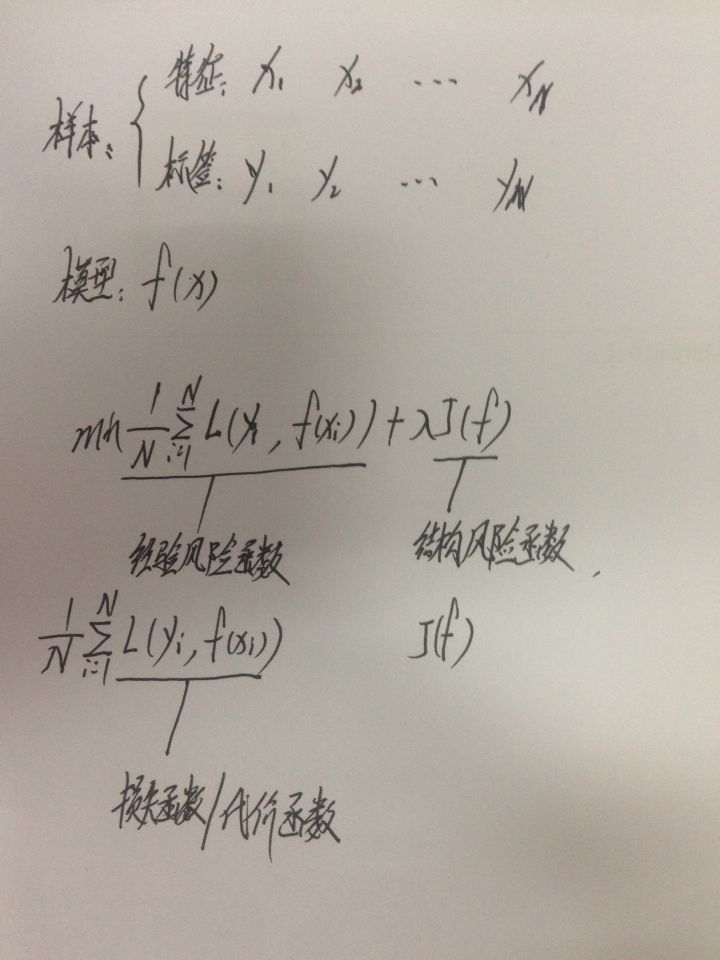 样本: { 特征: x₁ x₂ ... x_N
标签: y₁ y₂ ... y_N
模型: f(x)
min 1/N ∑_{i=1}^{N} L(y_i, f(x_i)) + λJ(f)
经验风险函数 结构风险函数
1/N ∑_{i=1}^{N} L(y_i, f(x_i)) J(f)
损失函数/代价函数